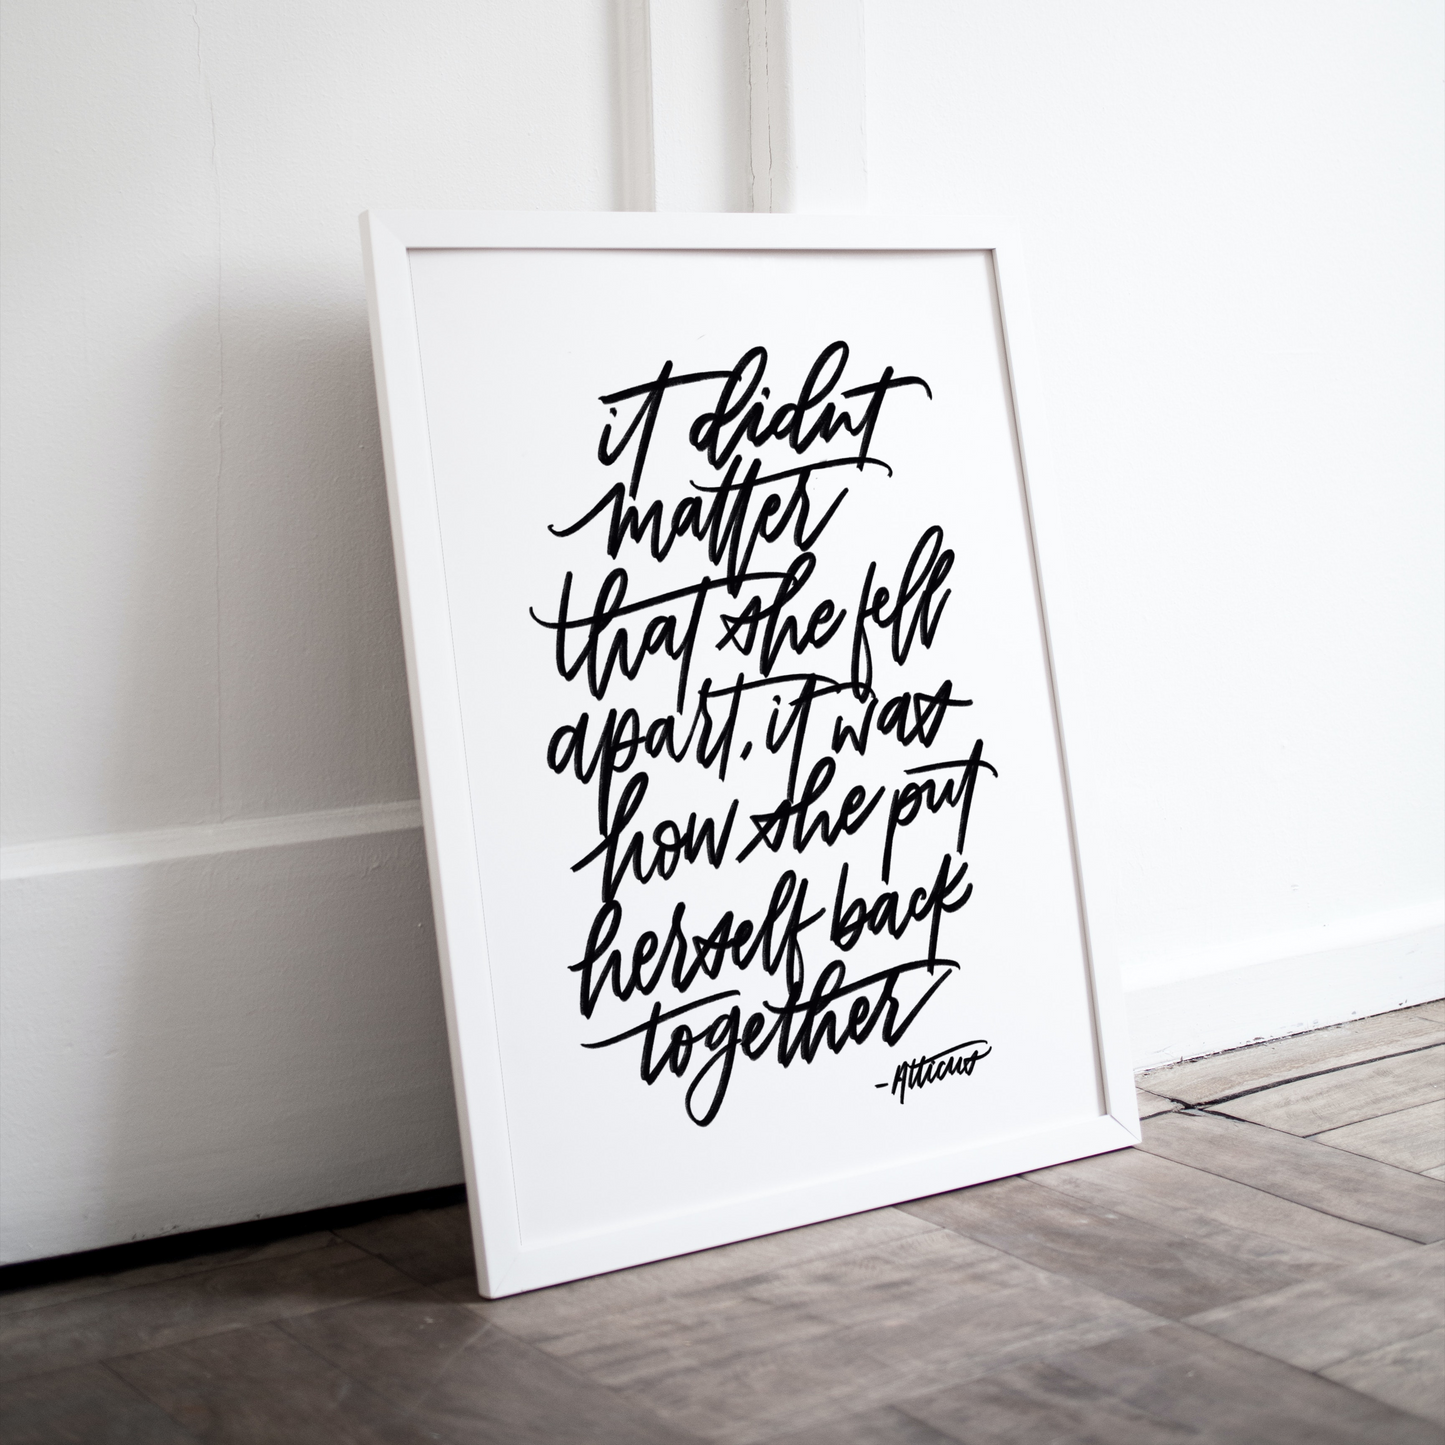 it didnt
matter
that she fell
apart, it was
how she put
herself back
together
-Atticus